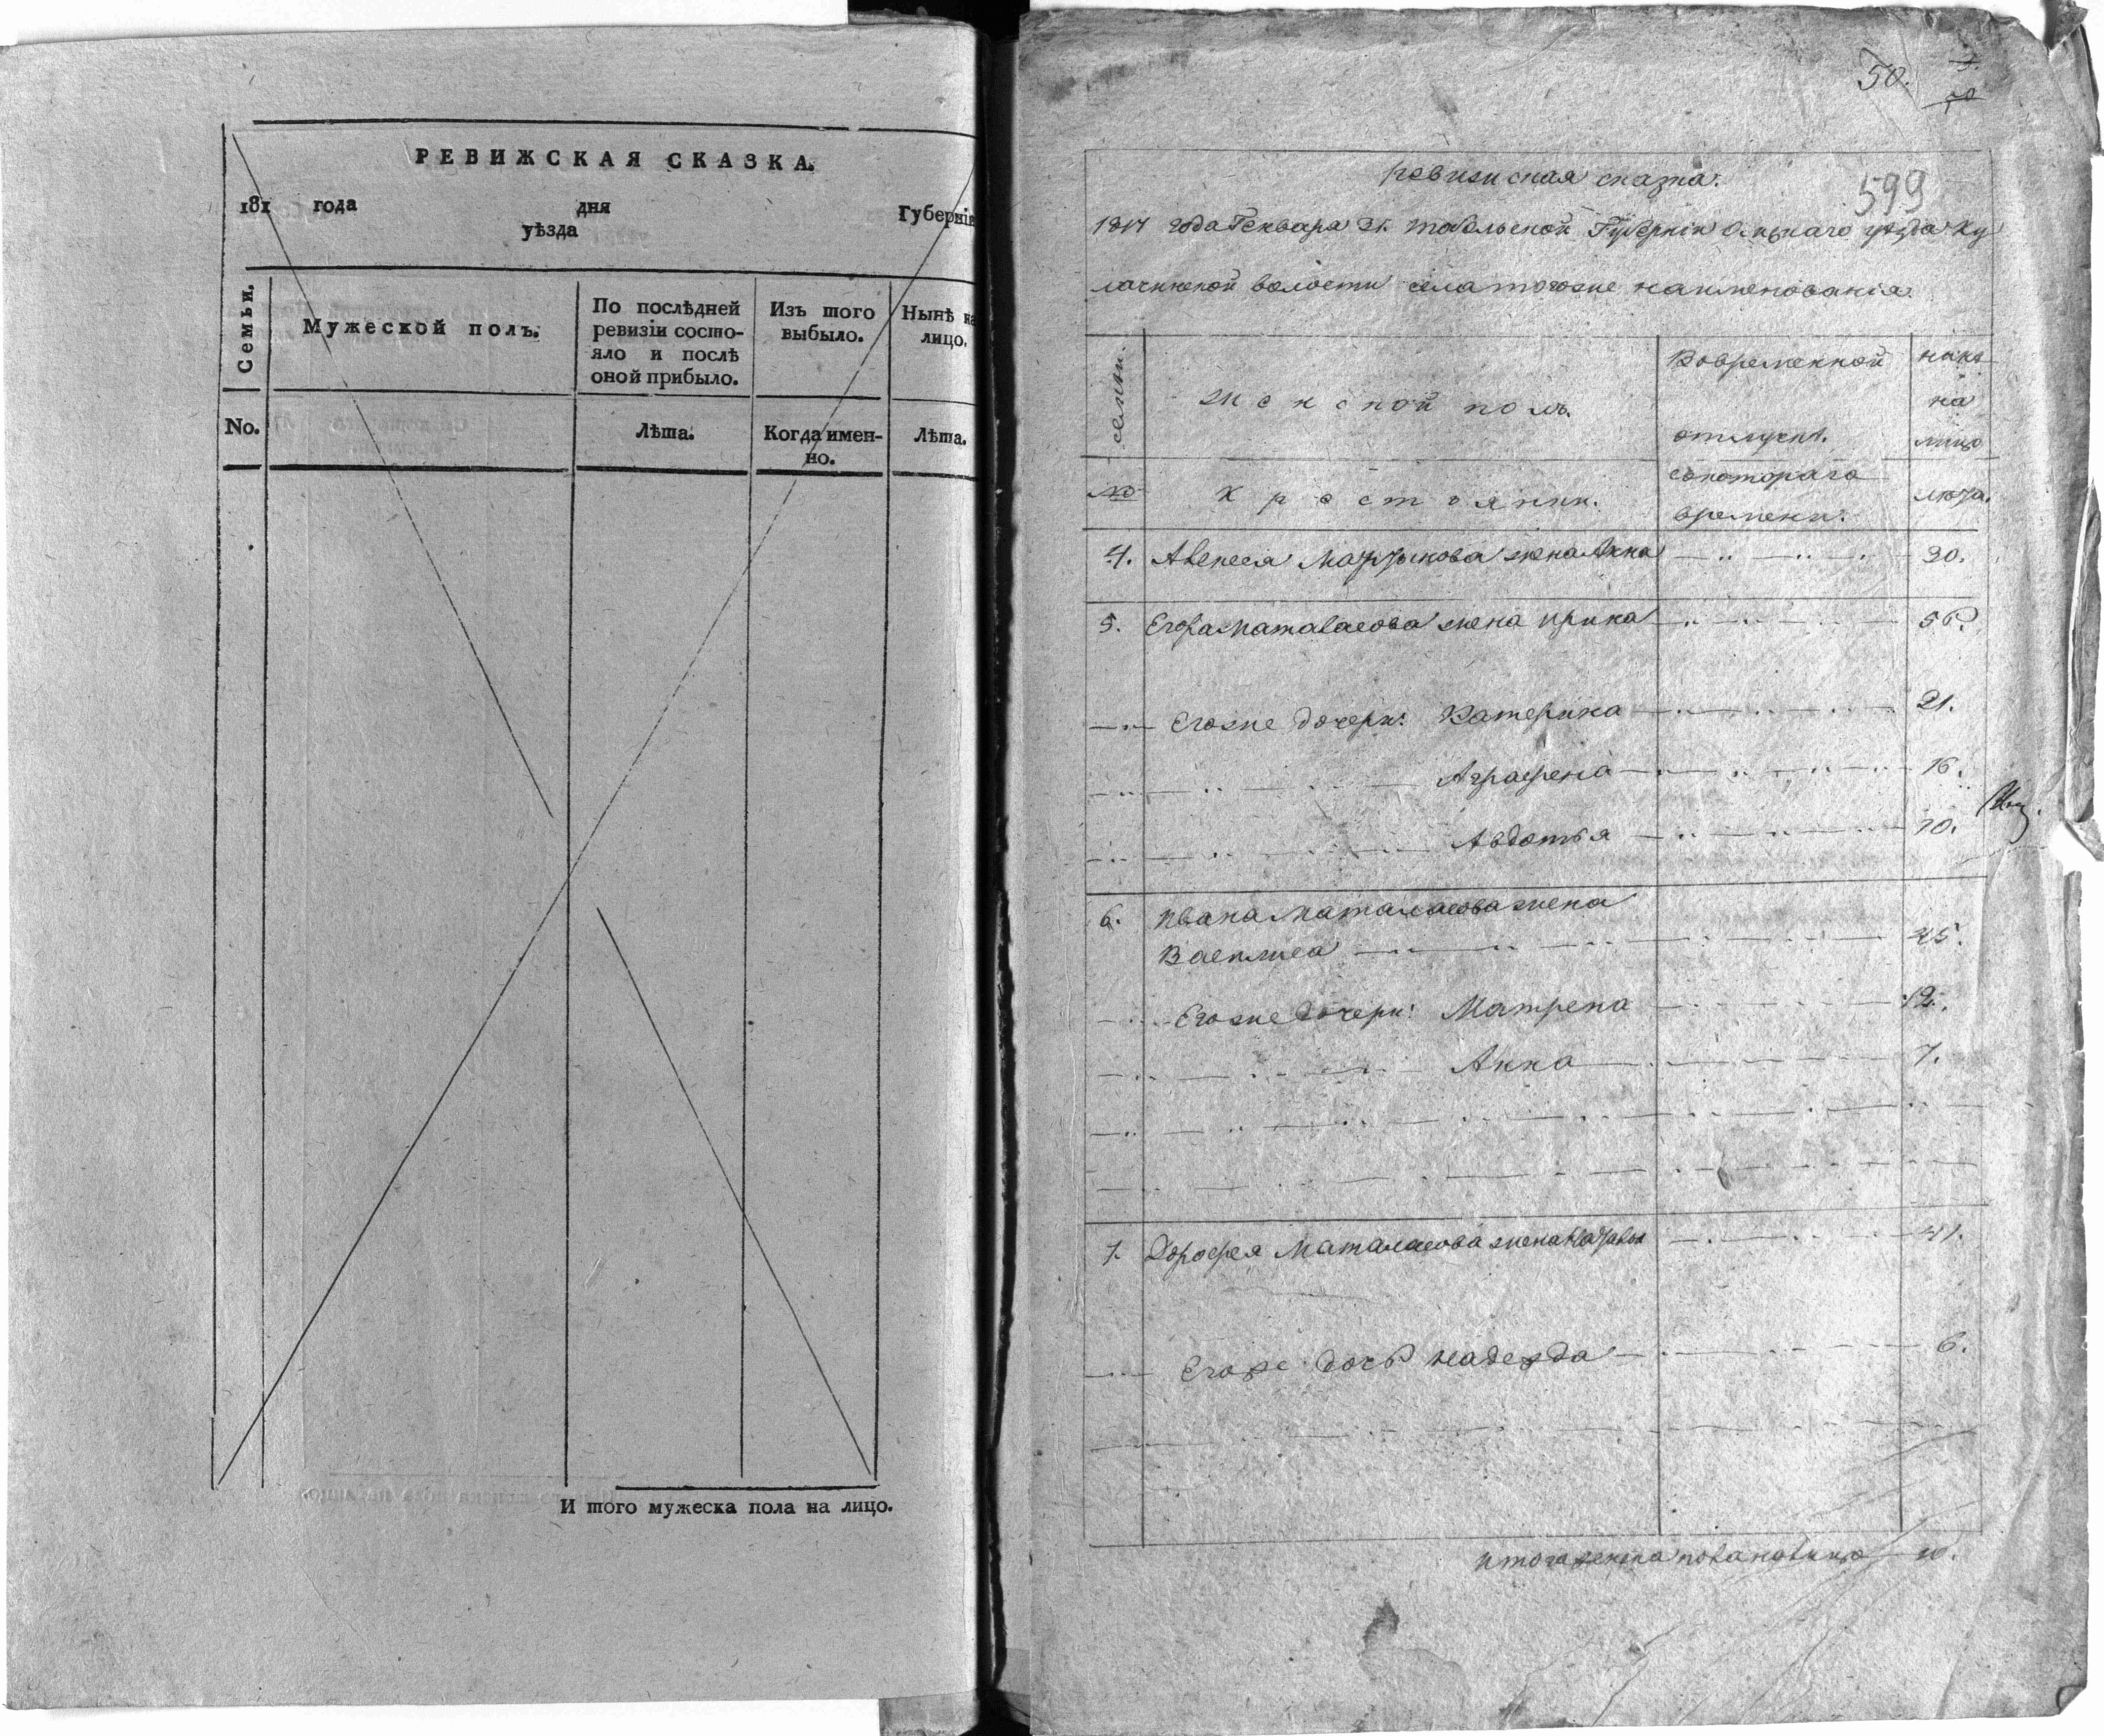 РЕВИЖСКАЯ СКАЗКА.
181 года дня Губерніи
уѣзда
Семьи.
Мужеской полъ.
По послѣдней ревизіи состо-
яло и послѣ оной прибыло.
Изъ того выбыло.
Нынѣ на лицо,
No.
Лѣта.
Когда имен-
но.
Лѣта.
И того мужеска пола на лицо.
50.
599
ревизская сказка.
1817 года Генваря 31. тобольской Губерніи Омскаго уезда Ку
лачинской волости села тогоже наименованія.
семьи.
женской полъ.
Вовременной
отлучке.
ныне
на
лицо
№
крестьянки.
скотораго
времени.
лета.
4. Алексея Мазыкова жена Анна 30.
5. Егора Маталасова жена ирина 56.
Егоже дочери: Катерина 21.
Аграфена 16.
Авдотья 10.
6. ивана Маталасова жена
Василиса 45.
Егоже дочери: Матрена 12.
Анна 7.
7. Дорофея Маталасова жена 41.
Егоже дочь надежда 6.
итого женска пола налицо 10.